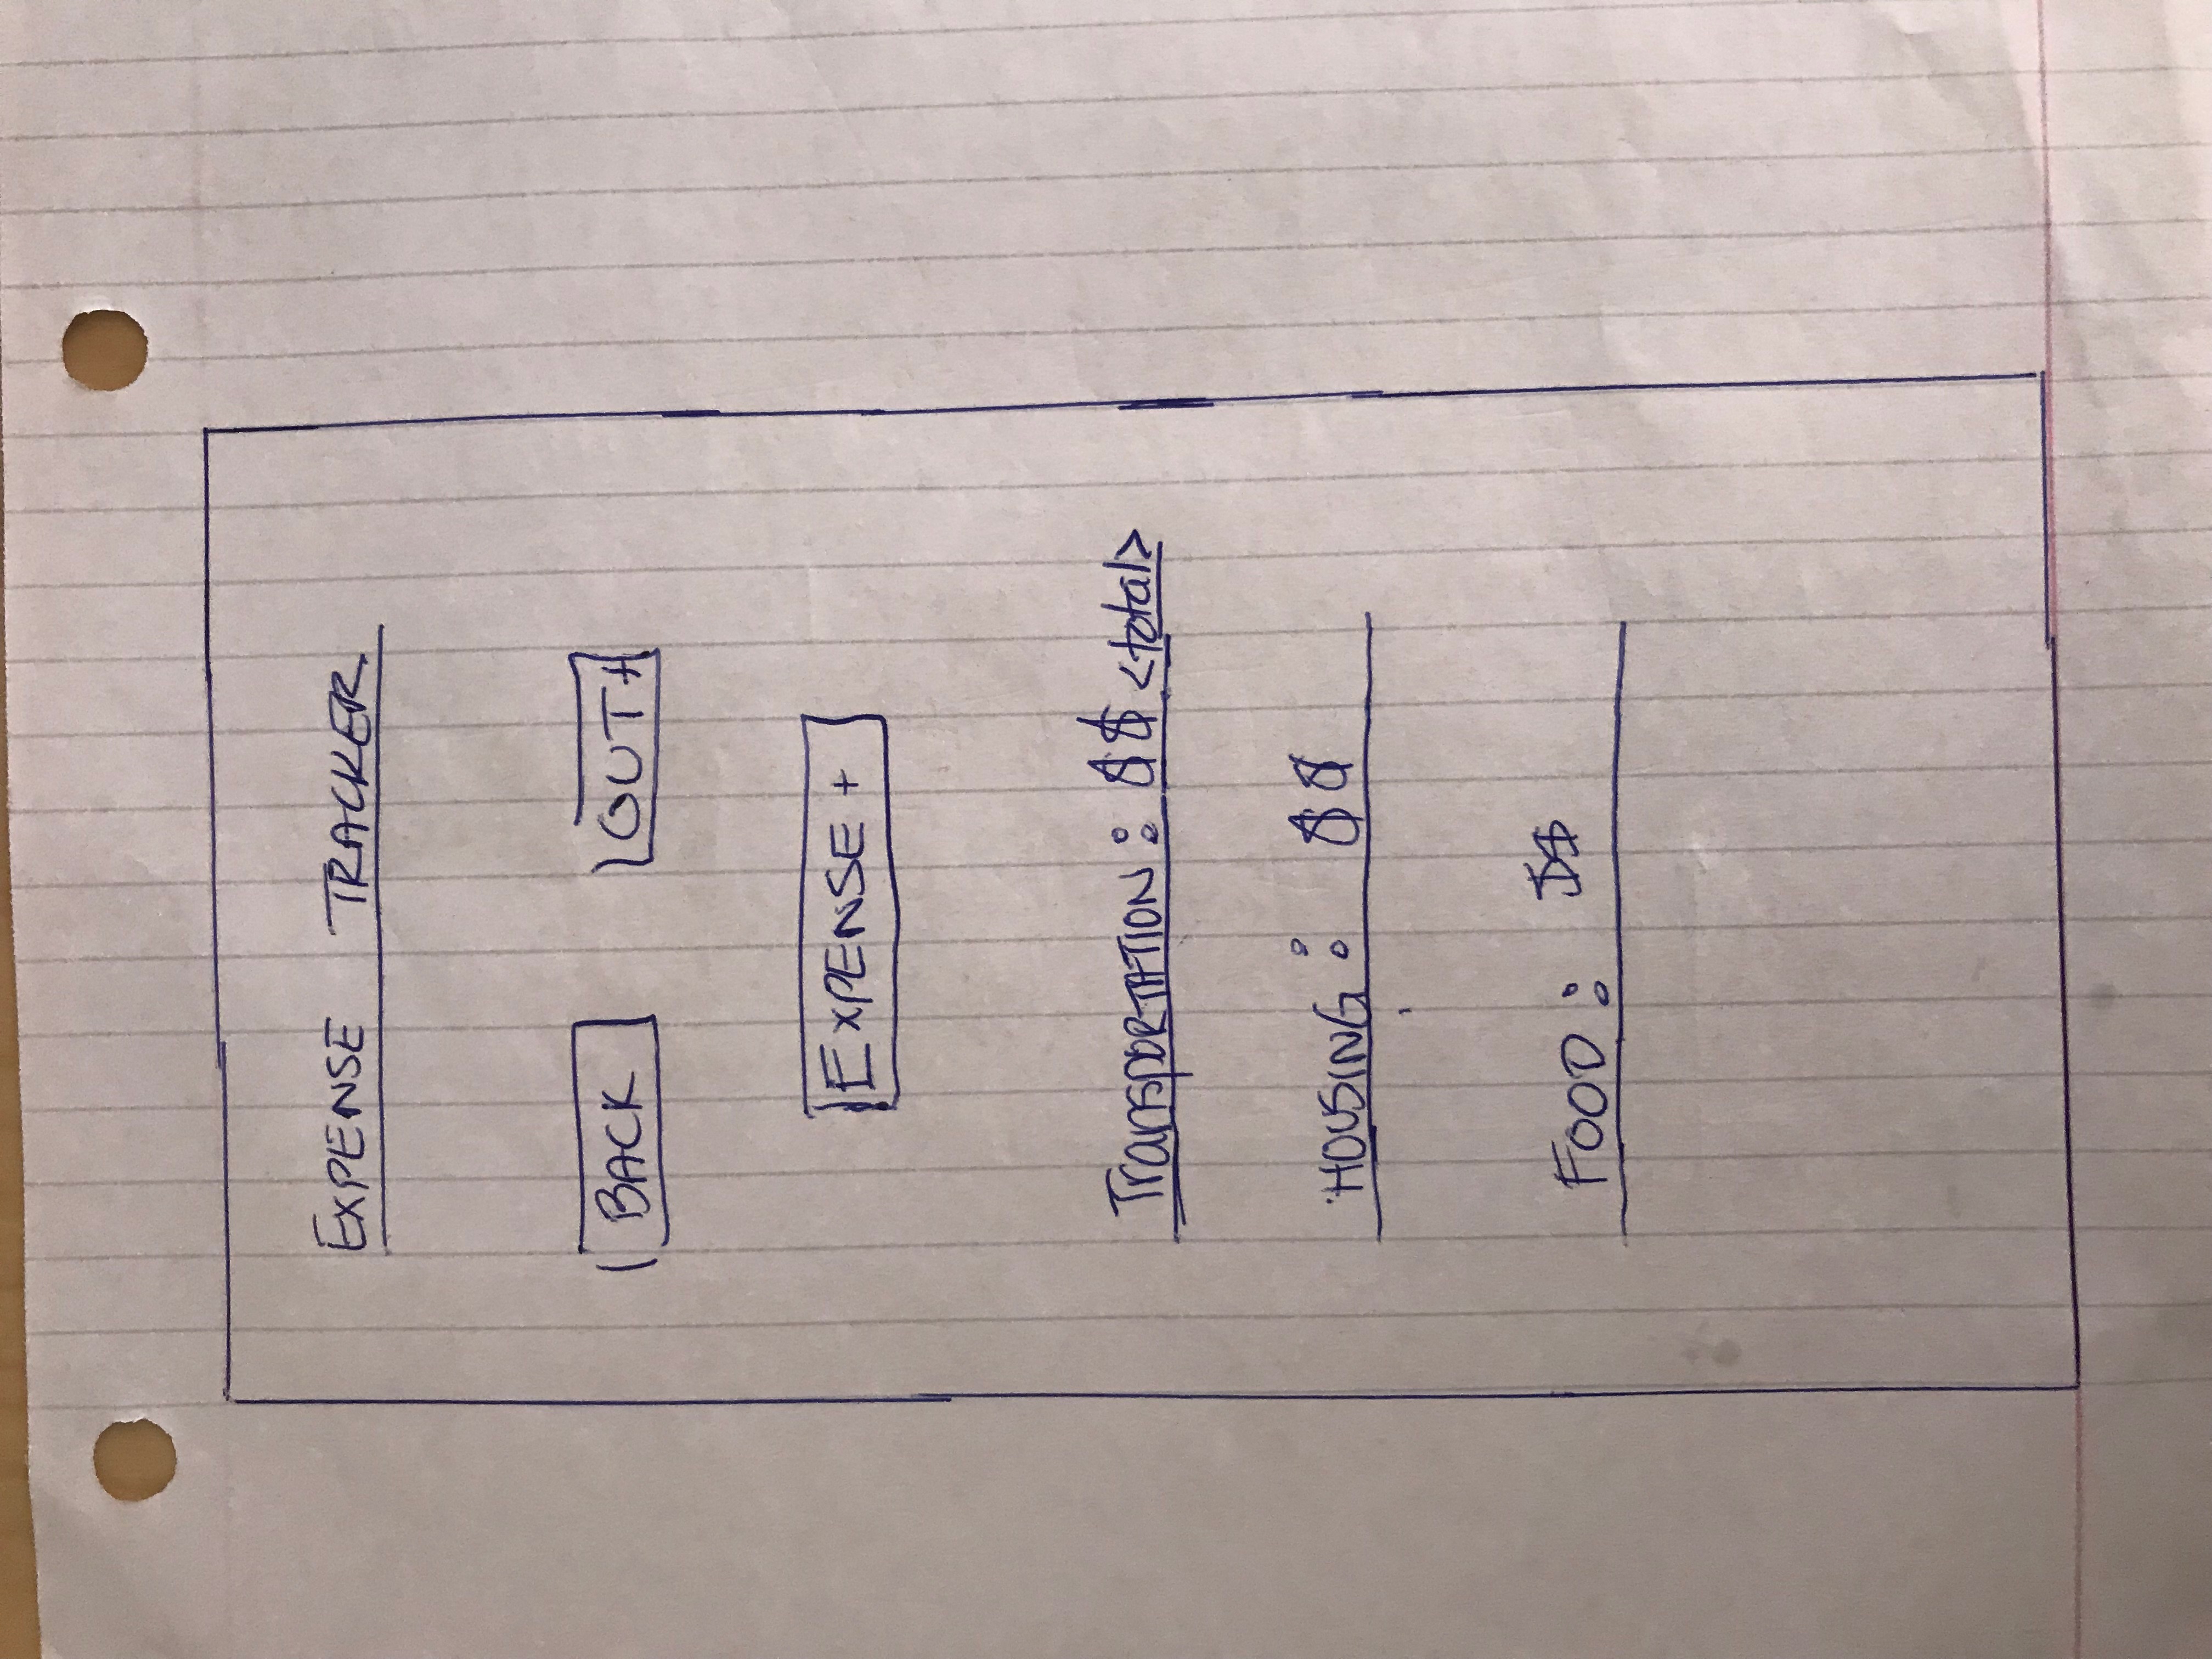 EXPENSE TRACKER
BACK OUT+
EXPENSE +
Transportation: $$ <total>
HOUSING: $$
FOOD: $$